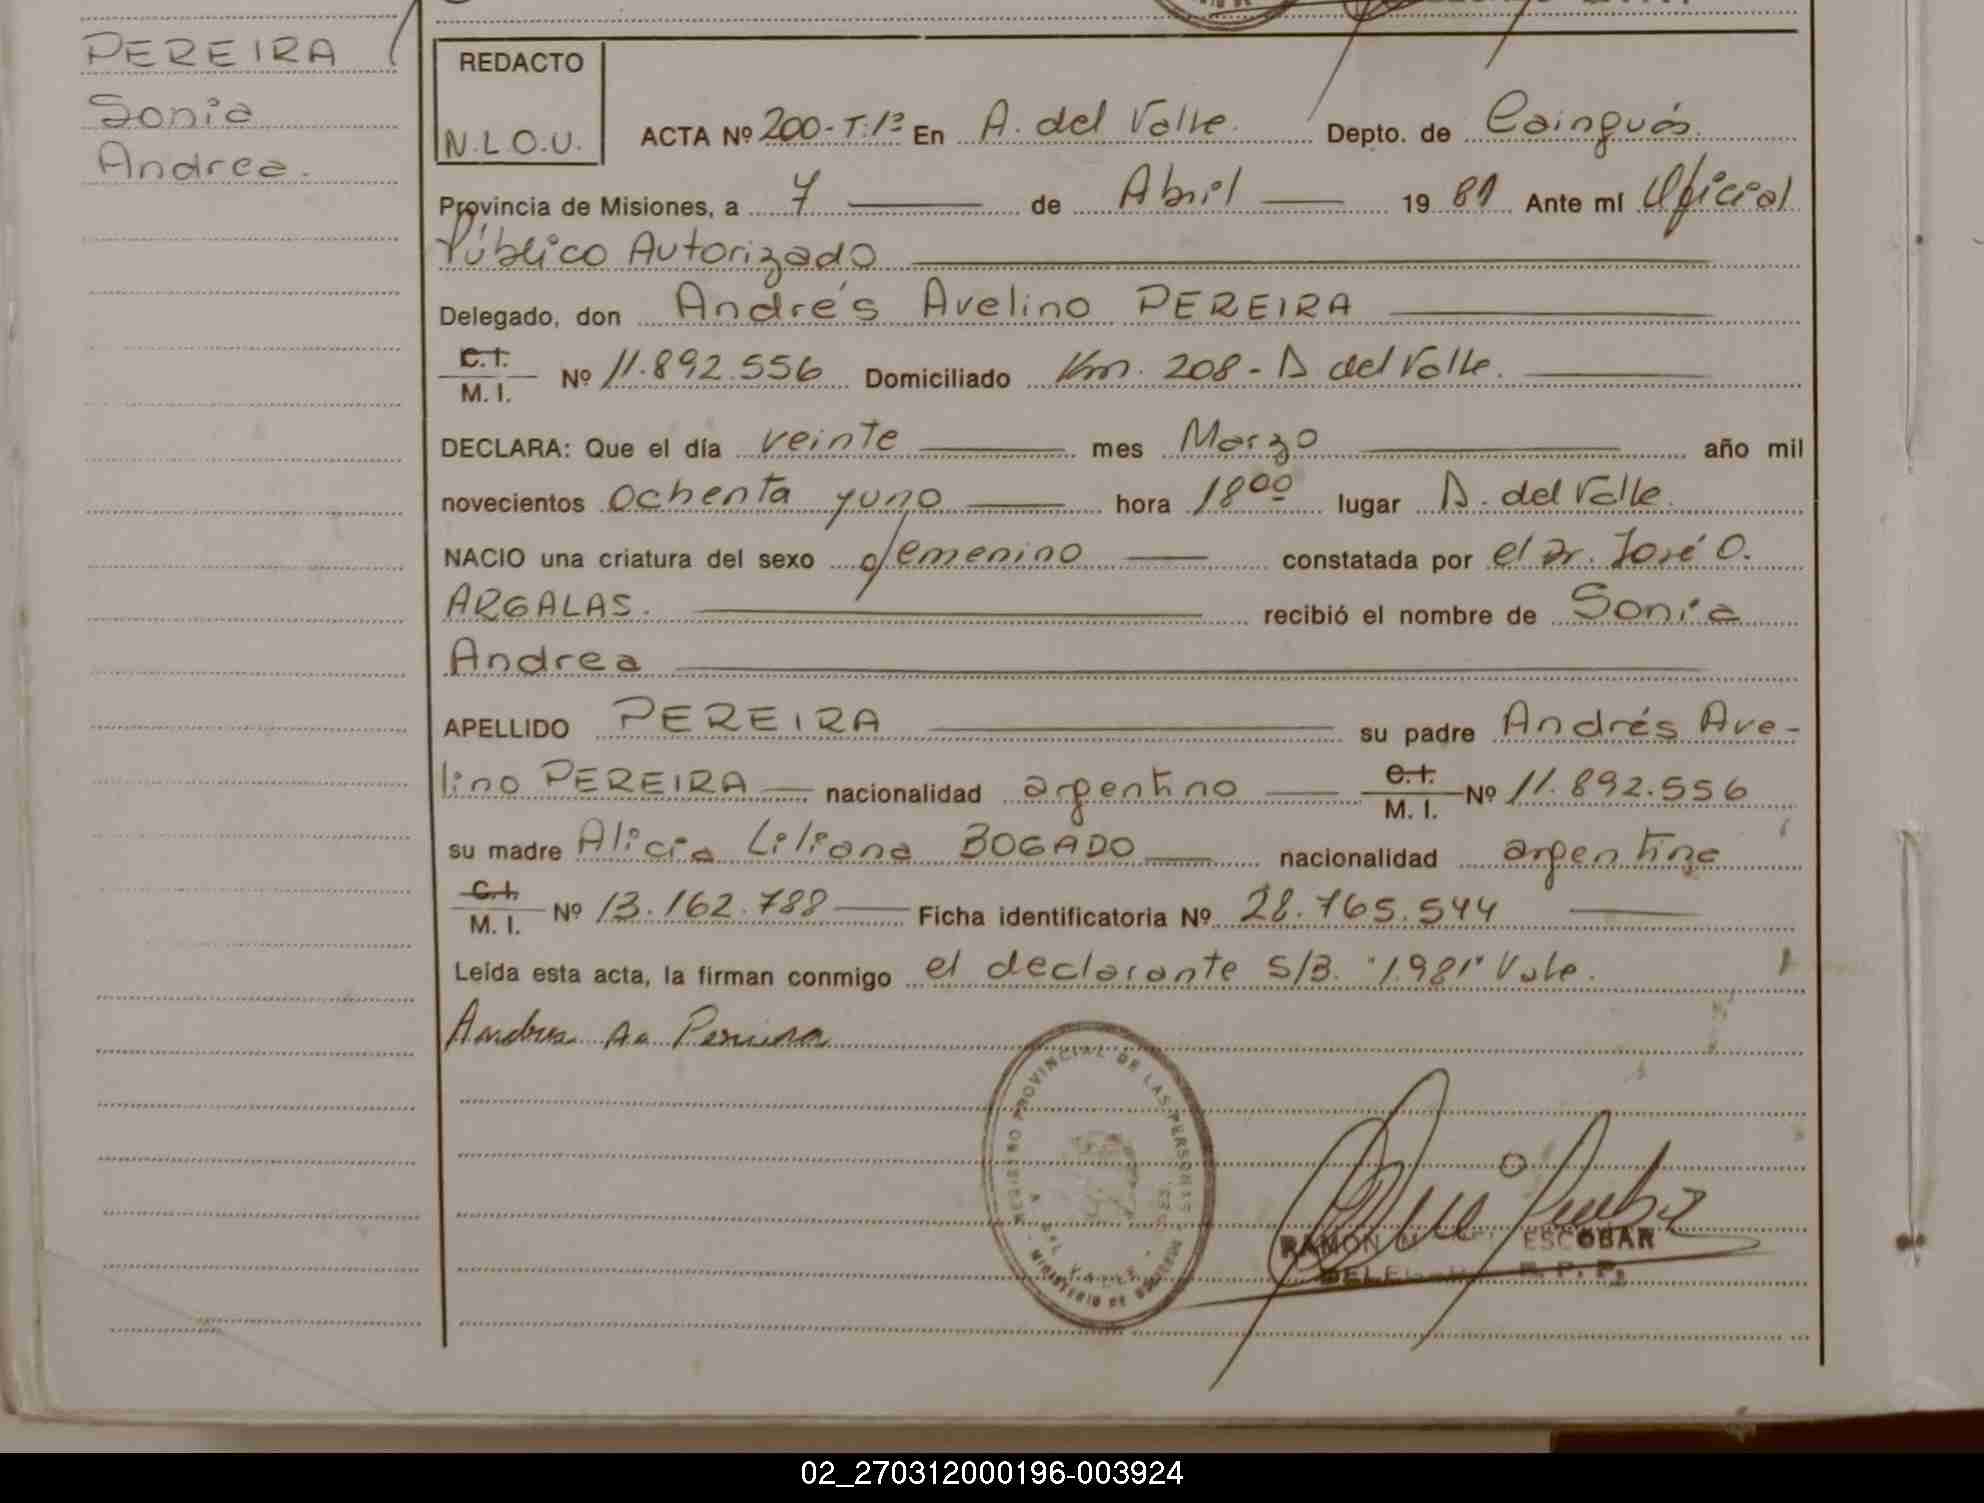 PEREIRA
Sonia
Andrea.
REDACTO
N.L.O.U.
ACTA Nº 200-T:1º En A. del Valle. Depto. de Cainguás.
Provincia de Misiones, a 7 de Abril 1981 Ante mí Oficial
Público Autorizado
Delegado, don Andrés Avelino PEREIRA
C.I.
M. I. Nº 11.892.556 Domiciliado Km. 208 - A del Valle.
DECLARA: Que el día veinte mes Marzo año mil
novecientos ochenta y uno hora 18ºº lugar A. del Valle.
NACIO una criatura del sexo femenino constatada por el Dr. José O.
ARGALAS. recibió el nombre de Sonia
Andrea
APELLIDO PEREIRA su padre Andrés Ave-
lino PEREIRA nacionalidad argentino C.I. M. I. Nº 11.892.556
su madre Alicia Liliana BOGADO nacionalidad argentina
C.I.
M. I. Nº 13.162.788 Ficha identificatoria Nº 28.765.544
Leída esta acta, la firman conmigo el declarante S/B. "1.981" Vale.
Andres A. Pereira
REGISTRO PROVINCIAL DE LAS PERSONAS
A. DEL VALLE
MINISTERIO DE GOBIERNO
RAMON ESCOBAR
R. P. P.
02_270312000196-003924